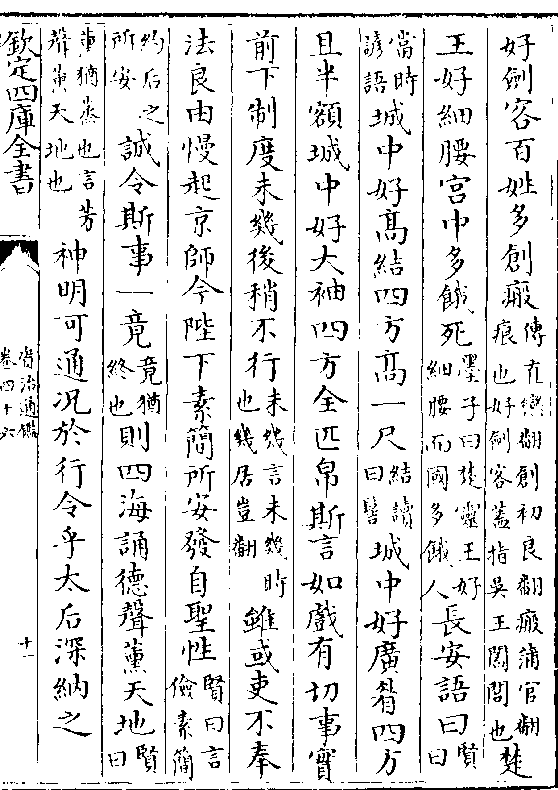 好劍客百姓多創瘢傳直戀翻創初良翻瘢蒲官翻
痕也好劍客蓋指吳王闔閭也楚
王好細腰宮中多餓死墨子曰楚靈王好
細腰而國多餓人長安語曰賢曰
當時
諺語城中好高結四方高一尺結讀
曰髻城中好廣眉四方
且半額城中好大袖四方全匹帛斯言如戲有切事實
前下制度未幾後稍不行未幾言未幾時
也幾居豈翻雖或吏不奉
法良由慢起京師今陛下素簡所安發自聖性賢曰言
儉素簡
約后之
所安誠令斯事一竟竟猶
終也則四海誦德聲薰天地賢曰
薰猶蒸也言芳
聲薰天地也神明可通況於行令乎太后深納之
欽定四庫全書
資治通鑑
卷四十六
十一